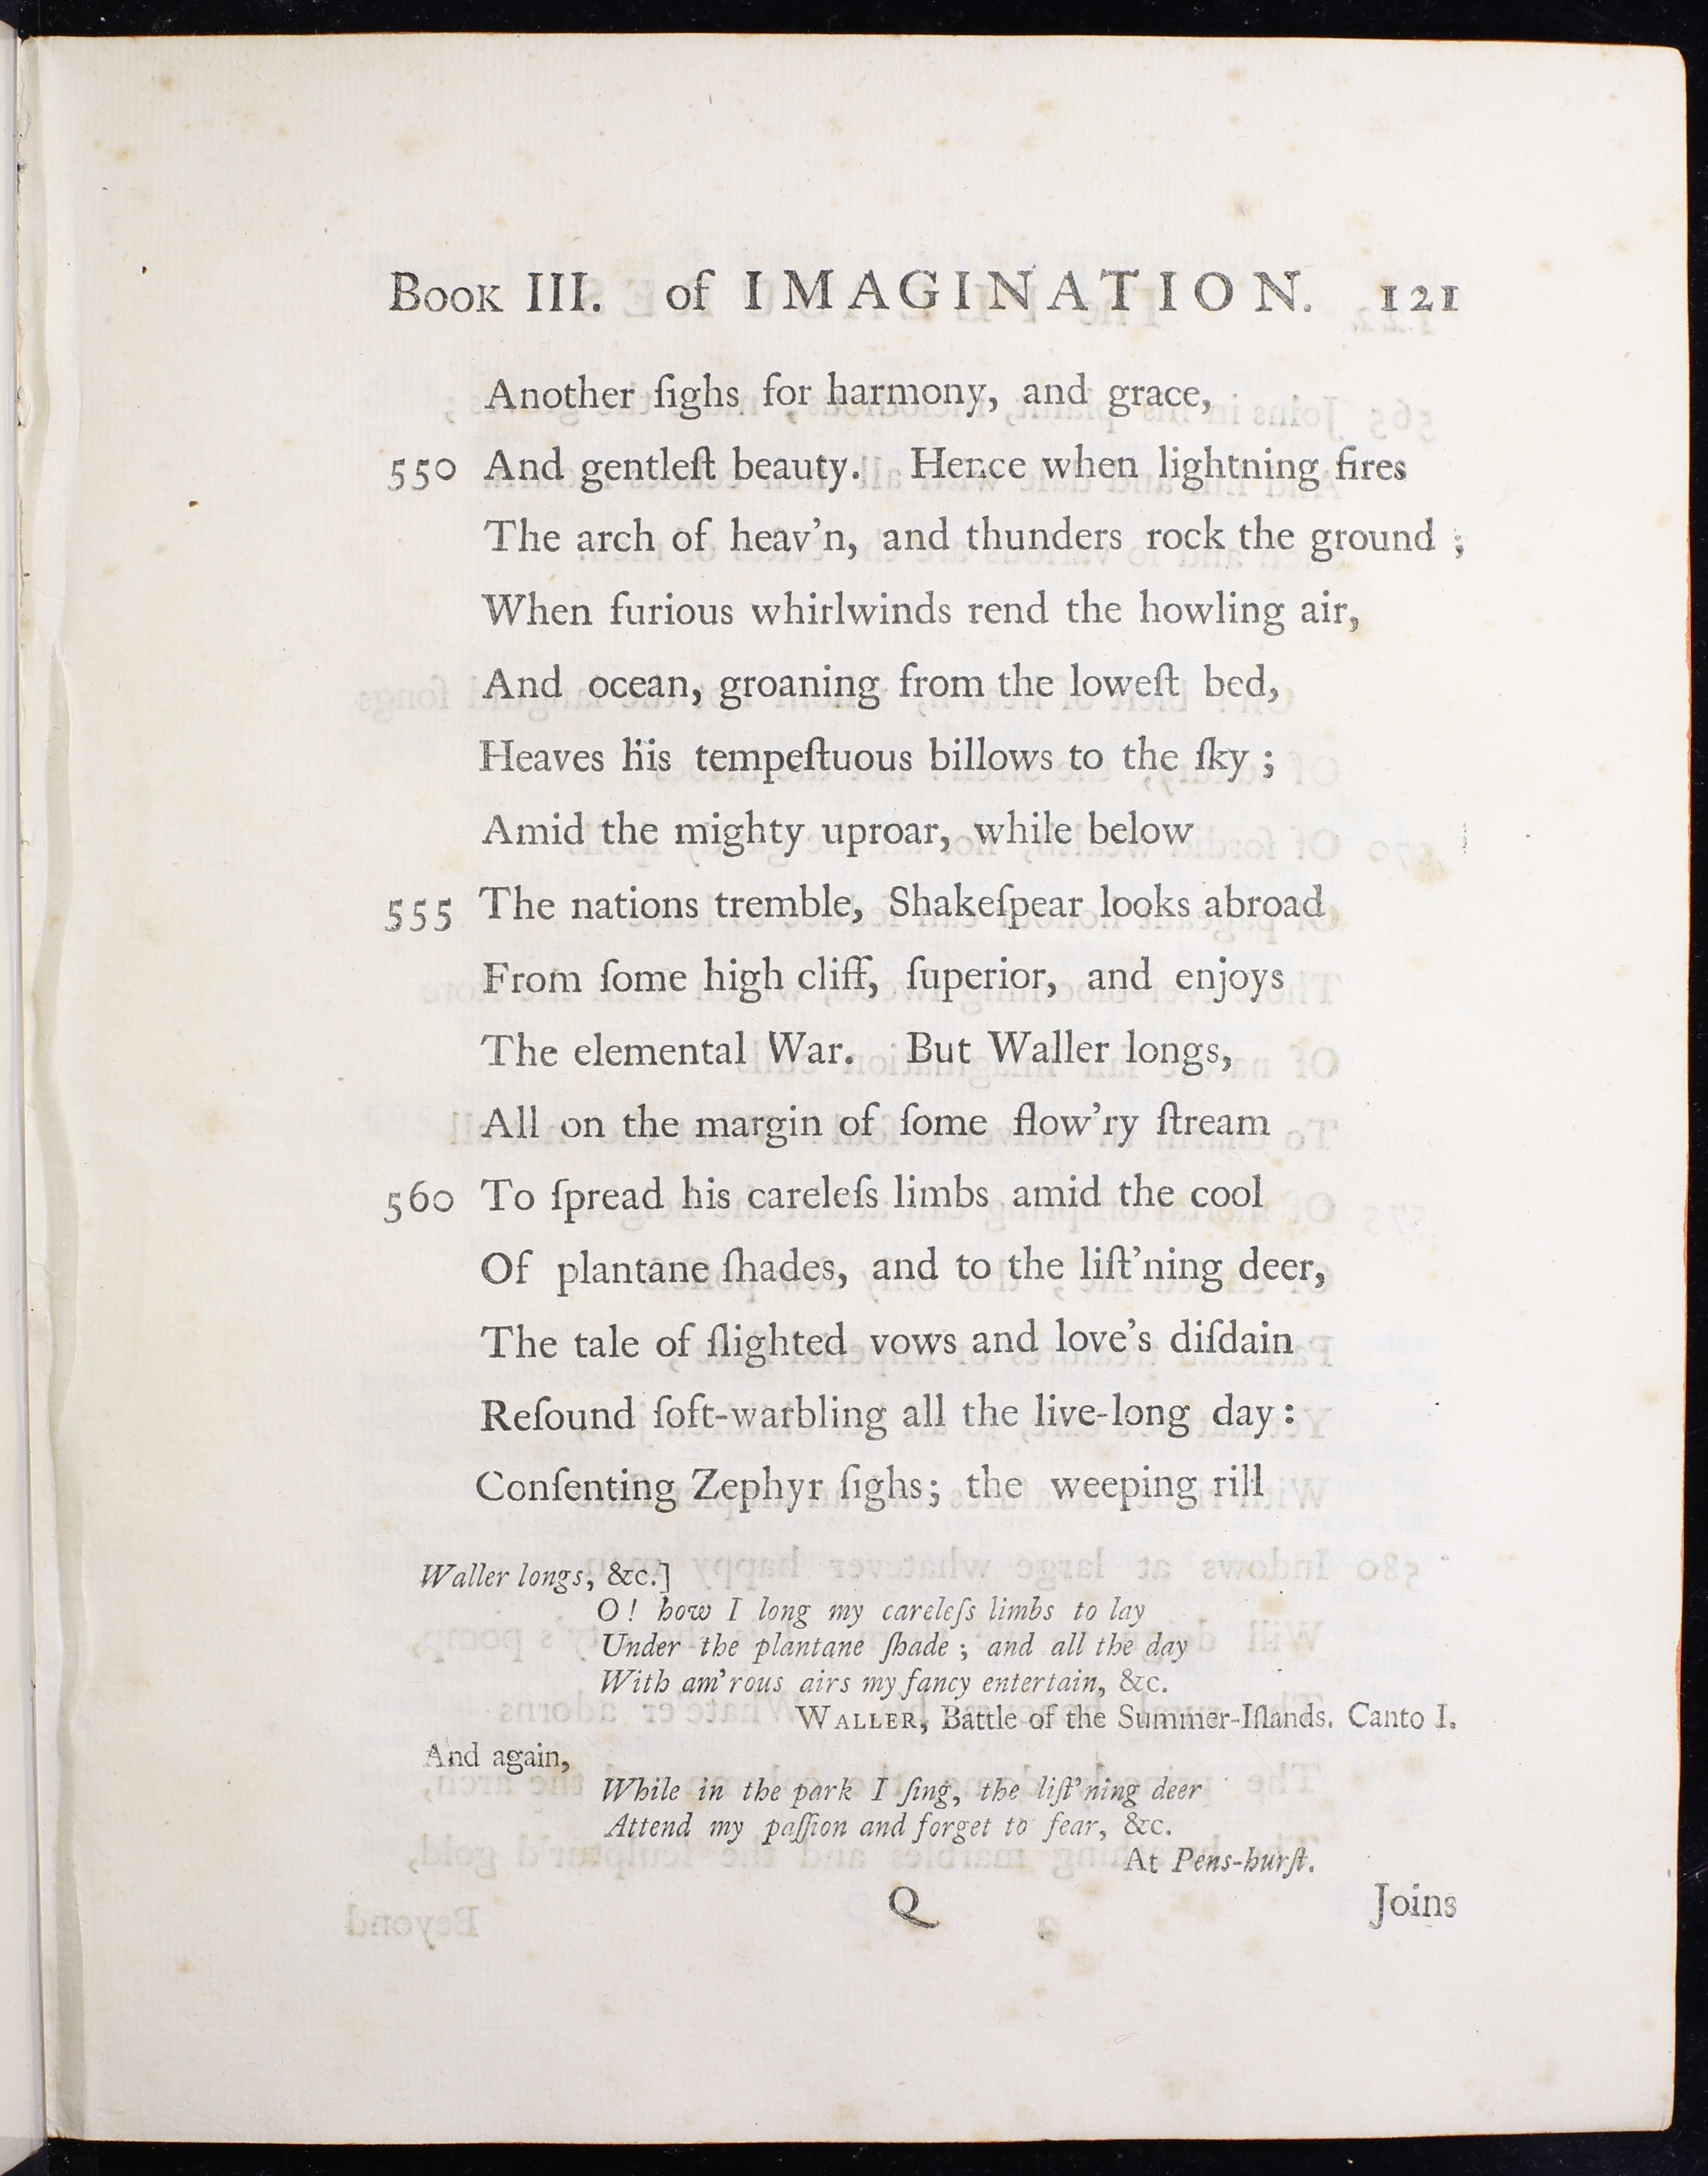 Book III. of IMAGINATION. 121
Another ſighs for harmony, and grace,
550 And gentleſt beauty. Hence when lightning fires
The arch of heav'n, and thunders rock the ground ;
When furious whirlwinds rend the howling air,
And ocean, groaning from the loweſt bed,
Heaves his tempeſtuous billows to the ſky ;
Amid the mighty uproar, while below
555 The nations tremble, Shakeſpear looks abroad
From ſome high cliff, ſuperior, and enjoys
The elemental War. But Waller longs,
All on the margin of ſome flow'ry ſtream
560 To ſpread his careleſs limbs amid the cool
Of plantane ſhades, and to the liſt'ning deer,
The tale of ſlighted vows and love's diſdain
Reſound ſoft-warbling all the live-long day :
Conſenting Zephyr ſighs; the weeping rill
Waller longs, &c.]
O ! how I long my careleſs limbs to lay
Under the plantane ſhade ; and all the day
With am'rous airs my fancy entertain, &c.
WALLER, Battle of the Summer-Iſlands. Canto I.
And again,
While in the park I ſing, the liſt'ning deer
Attend my paſſion and forget to fear, &c.
At Pens-hurſt.
Q Joins